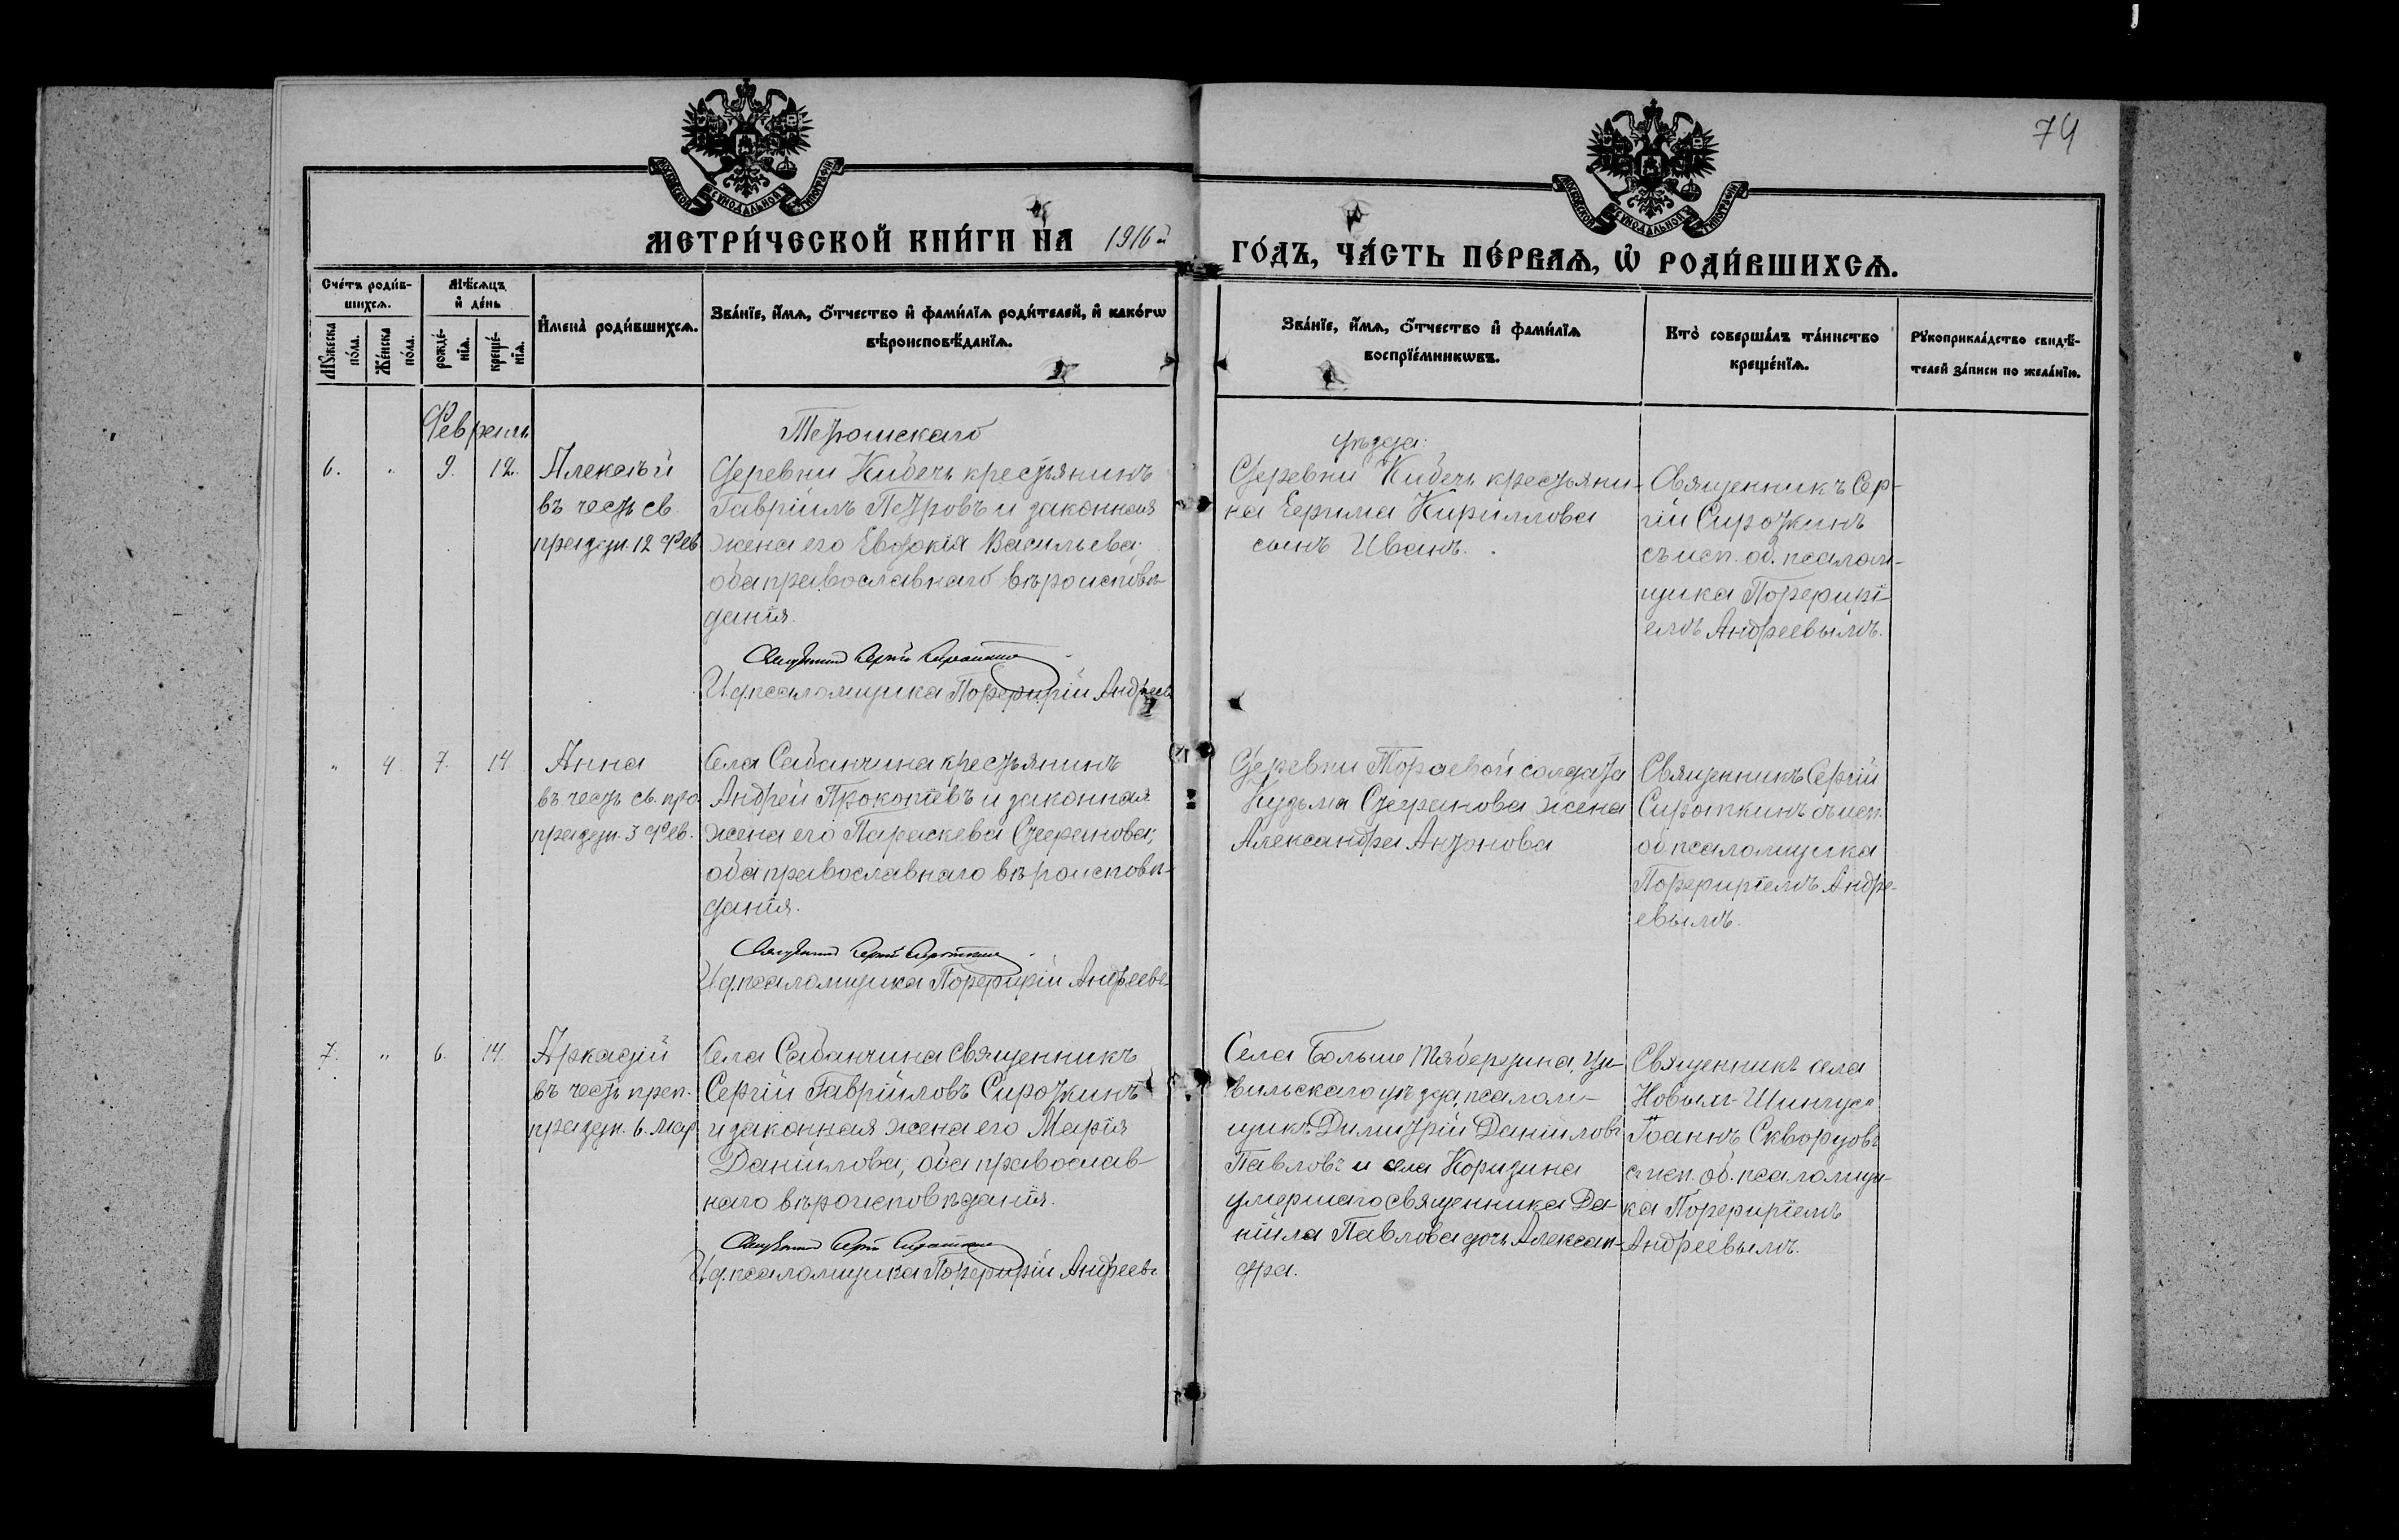 74
МОСКОВСКОЙ СѴНОДАЛЬНОЙ ТИПОГРАФІИ
МОСКОВСКОЙ СѴНОДАЛЬНОЙ ТИПОГРАФІИ
МЕТРИ́ЧЕСКОЙ КНИ́ГИ НА 1916й
ГО́ДЪ, ЧА́СТЬ ПЕ́РВАѦ, Ѡ҆ РОДИ́ВШИХСѦ.
Сче́тъ роди́в-
шихсѧ.
Мꙋ́жеска по́ла.
Же́нска по́ла.
Мѣ́сѧцъ
и҆ де́нь
рожде́-
нїѧ.
креще́-
нїѧ.
И҆мена̀ роди́вшихсѧ.
Зва́нїе, и҆́мѧ, ѻ҆́тчество и҆ фами́лїѧ роди́телей, и҆ како́гѡ
вѣроисповѣ́данїѧ.
Зва́нїе, и҆́мѧ, ѻ҆́тчество и҆ фами́лїѧ
воспрїе́мникѡвъ.
Кто̀ соверша́лъ та́инство
креще́нїѧ.
Рꙋкоприкла́дство свидѣ́-
телей за́писи по жела́нїю.
Февраль
Тетюшскаго
уѣзда:
6. " 9. 12.
Алексѣй
въ честь св.
празdн. 12 Фев.
Деревни Кибечь крестьянинъ
Гавріилъ Петровъ и законная
жена его Евдокія Васильева;
оба православнаго вѣроисповѣ-
данія.
Священникъ Сергій Сироткинъ
И.д. псаломщика Порфирій Андреевъ
Деревни Кибечь крестьяни-
на Ефима Кириллова
сынъ Иванъ.
Священникъ Сер-
гій Сироткинъ
съ исп. об. псалом-
щика Порфирі-
емъ Андреевымъ.
" 4 7. 14.
Анна
въ честь св. про.
праздн. 3 Фев.
Села Сабанчина крестьянинъ
Андрей Прокопіевъ и законная
жена его Параскева Стефанова;
оба православнаго вѣроисповѣ-
данія.
Священникъ Сергій Сироткинъ
И.д. псаломщика Порфирій Андреевъ
Деревни Тораевой солдата
Кузьма Стефанова жена
Александра Антонова
Священникъ Сергій
Сироткинъ съ исп.
об. псаломщика
Порфиріемъ Андре-
евымъ.
7. " 6. 14.
Аркадій
въ честь преп.
праздн. 6. мар
Села Сабанчина священникъ
Сергій Гавріиловъ Сироткинъ
и законная жена его Марія
Даніилова; оба православ-
наго вѣроисповѣданія.
Священникъ Сергій Сироткинъ
И.д. псаломщика Порфирій Андреевъ
Села Больше Тябердина, Ци-
вильскаго уѣзда, псалом-
щикъ Димитрій Даніиловъ
Павловъ и села
умершаго священника Да-
ніила Павлова дочь Алексан-
дра.
Священникъ села
Новыхъ-
Іоаннъ Скворцовъ
съ исп. об. псаломщи-
ка Порфиріемъ
Андреевымъ.